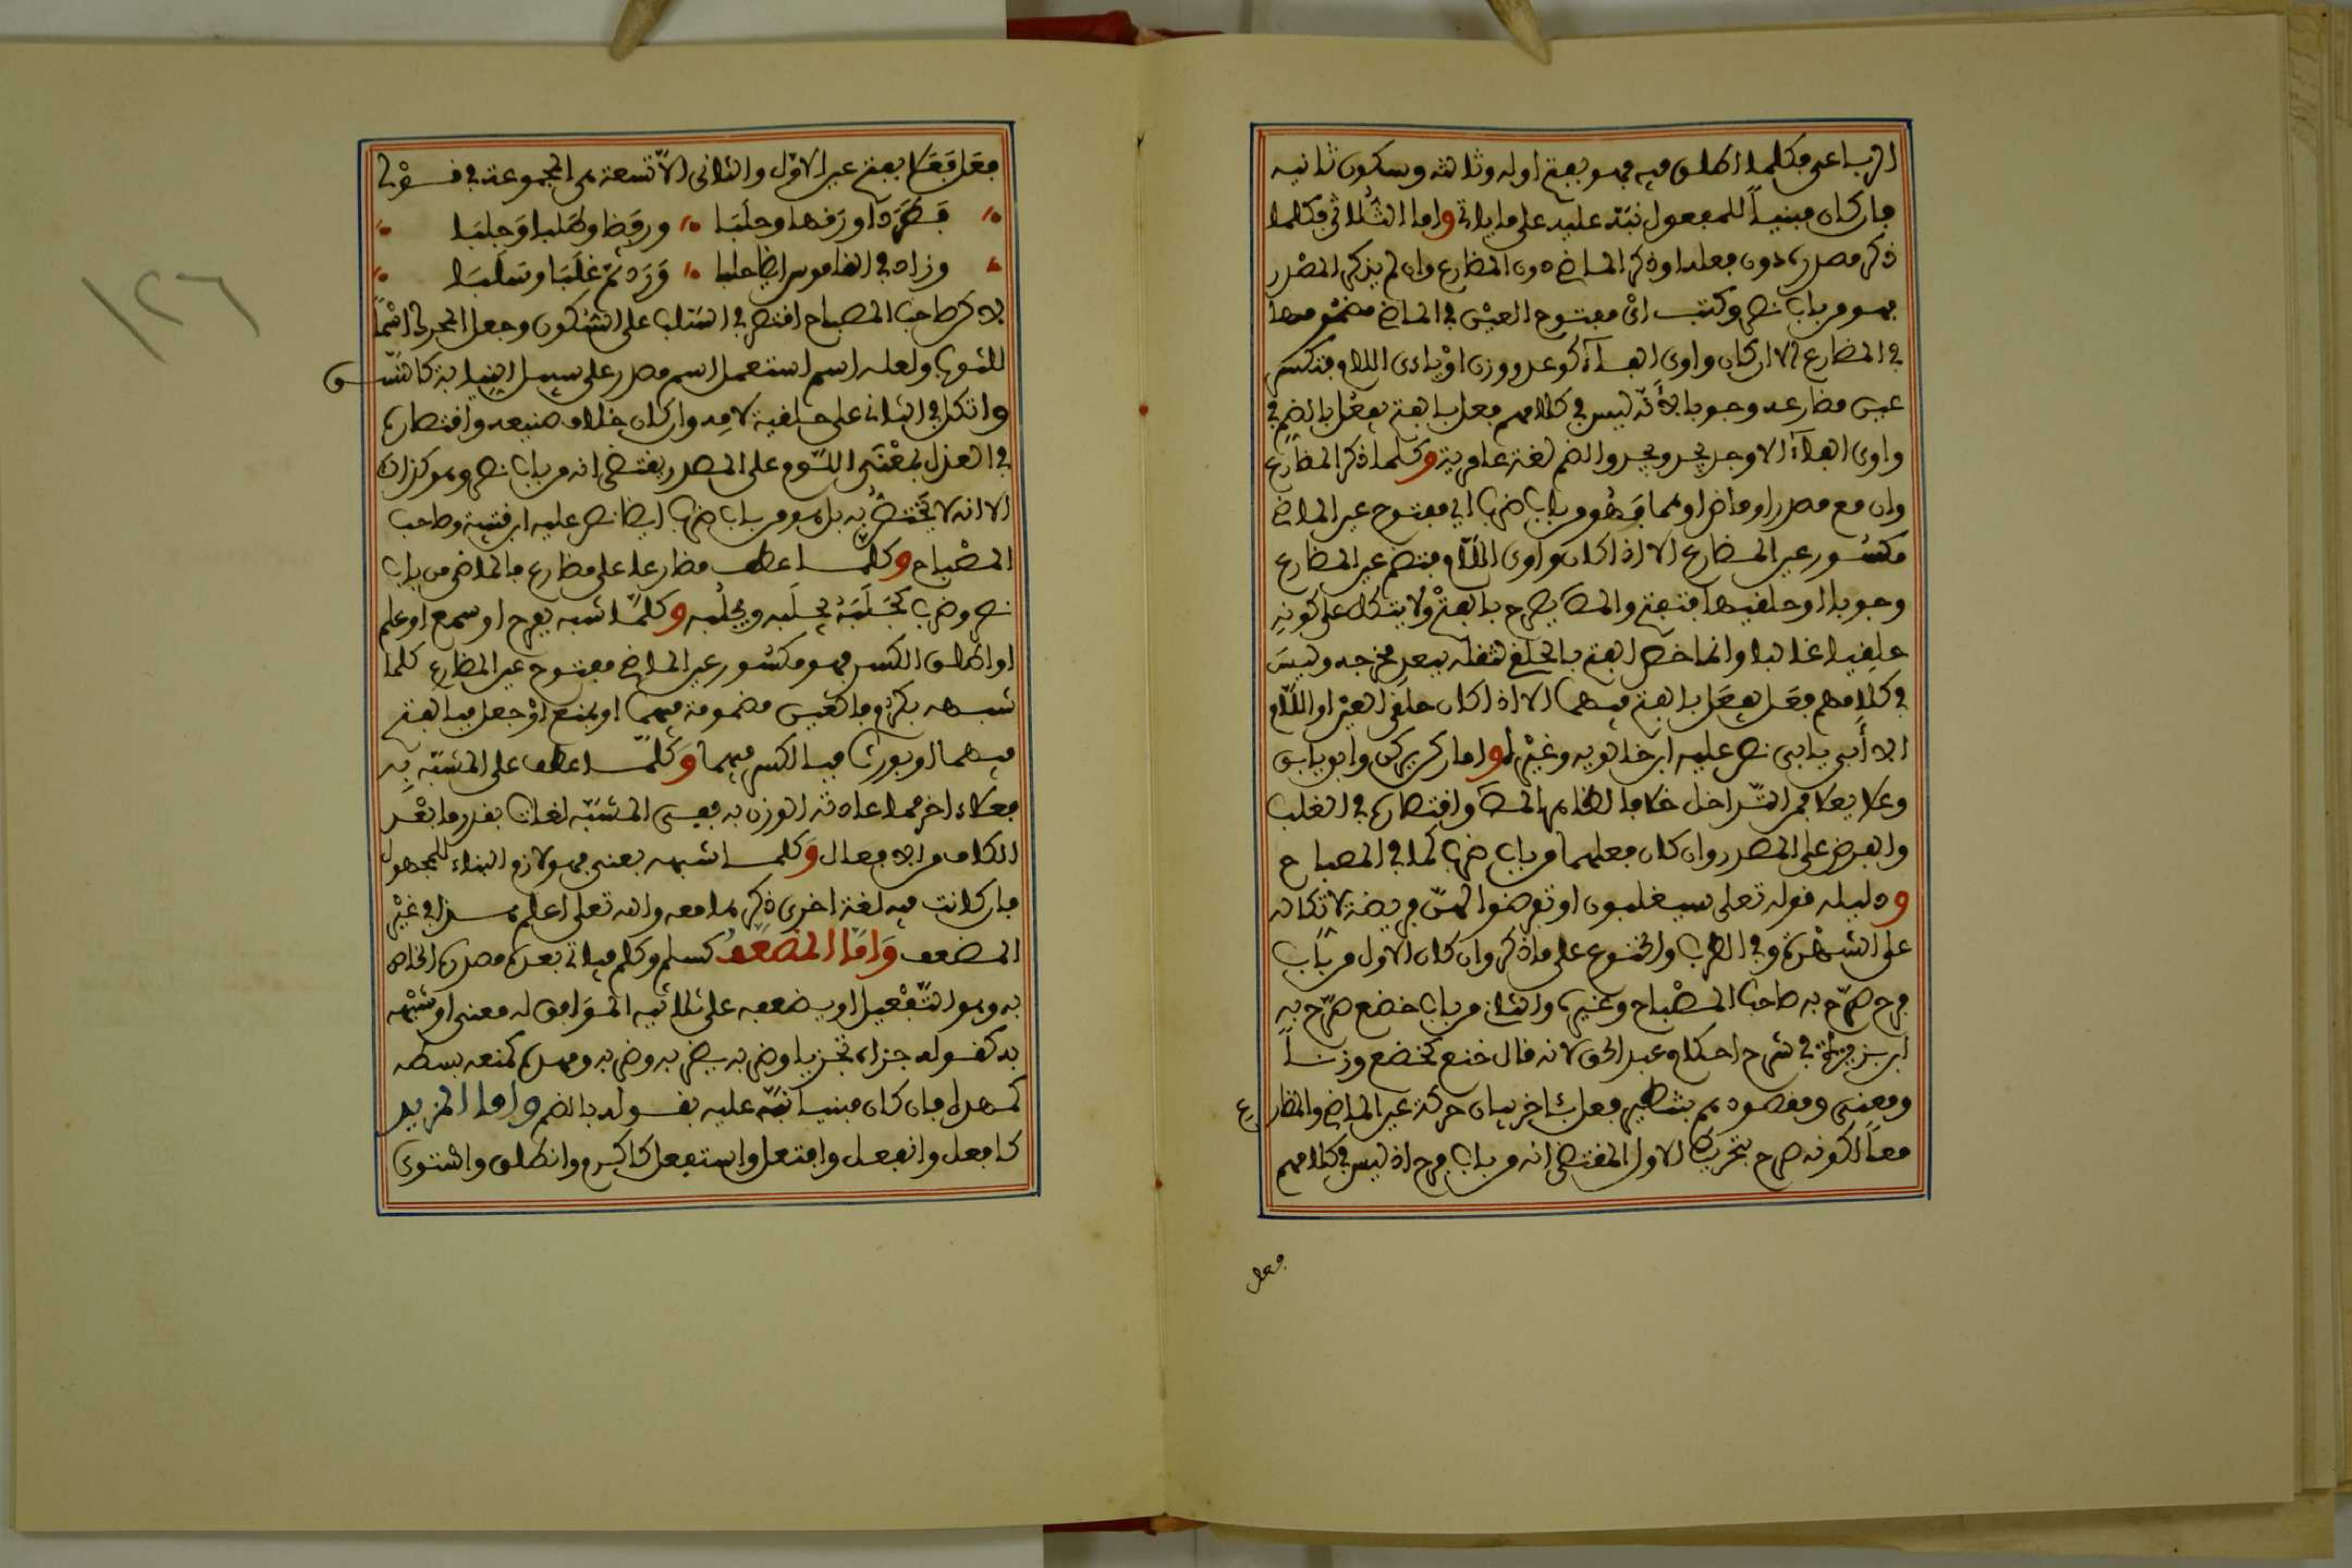 الرباعي فكلما اطلق فيه فهو بفتح اوله وثالثه وسكون ثانيه
فان كان مبنيا للمفعول نبه عليه على ما ياتي واما الثلاثي فكلما
ذكر مصدره دون فعله او ذكر الماضي دون المضارع وان لم يذكر المصدر
فهو من باب نصر وكتب اي مفتوح العين في الماضي مضمومها
في المضارع الا ان كان واوي الفاء كوعد ووزن او ياءى اللام فتكسر
عين مضارعه وجوبا لانه ليس في كلامهم فعل بالفتح يفعل بالضم في
واوى الفاء الا وجد يجد ويجد والضم لغة عامرية وكلما ذكر المضارع
وان مع مصدر او ماض او هما فهو من باب ضرب اي مفتوح عين الماضي
مكسور عين المضارع الا اذا كان واوى اللام فتضم عين المضارع
وجوبا او حلقيها فتفتح والم يصرح بالفتح ولا يتكل على كونه
حلقيا غالبا وانما خص الفتح بالحلق لثقله ببعد مخرجه وليس
في كلامهم فعل يفعل بالفتح فيهما الا اذا كان حلقي العين او اللام
الا أبى يابى نص عليه ابن خالويه وغيره واما ركن يركن وابق يابق
وعلا يعلا فمن التداخل خلافا لظاهر الم وافتصاره في الغلب
والفرض على المصدر وان كان فعلهما من باب ضرب كما في المصباح
ودليله قوله تعلى سيغلبون او تفرضوا لهن فريضة لا تكاله
على الشهرة وفي الطرب والخنوع على ما ذكر وان كان الاول من باب
فرح صرح به صاحب المصباح وغيره والثاني من باب خضع صرح به
ابن بزيزة في شرح احكام عبد الحق لانه قال خنع كخضع وزنا
ومعنى ومقصودهم بتنظير فعل بئاخر بيان حركة عين الماضي والمضارع
معا لكونه صرح بتحريك الاول المقتضي انه من باب فرح اذ ليس في كلامهم
فعل
فعل فعلا بفتح عين الاول والثاني الا تسعة هى المجموعة في قولي
وزاد في القاموس ايضا حلبا وزد ثم غلبا وسلبا
لاكن صاحب المصباح اقتصر في السلب على السكون وجعل المحرك اسما
للشيء ولعله اسم استعمل اسم مصدر على سبيل النيابة كالنسق
واتكل في الثاني على حلقية لامه وان كان خلاف صنيعه واقتصاره
في العزل بمعنى اللوم على المصدر يقتضي انه من باب نصر وهو كذلك
الا انه لا يختص به بل هو من باب ضرب ايضا نص عليه ابن قتيبة وصاحب
المصباح وكلما عطف مضارعا على مضارع فالماضي من باب
نصر وضرب كجلبه يجلبه ويجلبه وكلما شبه بفرح او سمع او علم
او اطلق الكسر فهو مكسور عين الماضي مفتوح عين المضارع كلما
شبهه بكرم فالعين مضمومة فيهما او بمنع او جعل فبالفتح
فيهما او بورث فبالكسر فيهما وكلما عطف على المشبه به
فعلا اخر مما عادته الوزن به ففي المشبه لغات بقدر ما بعد
الكاف من الافعال وكلما شبهه بعني فهو لازم البناء للمجهول
فان كانت فيه لغة اخرى ذكرها معه والله تعلى اعلم هذا في غير
المضعف واما المضعف كسلم وكلم فياتي بعده مصدره الخاص
به وهو التفعيل او يضعفه على ثلاثيه الموافق له معنى او شبهه
به كقوله جزاه تجزيا وضربه يضربه وضربه ومهده كمنعه بسطه
كمهده فان كان مبنيا نبه عليه بقوله بالضم واما المزيد
كافعل وانفعل وافتعل واستفعل كاكرم وانطلق واستوى
١٢٦